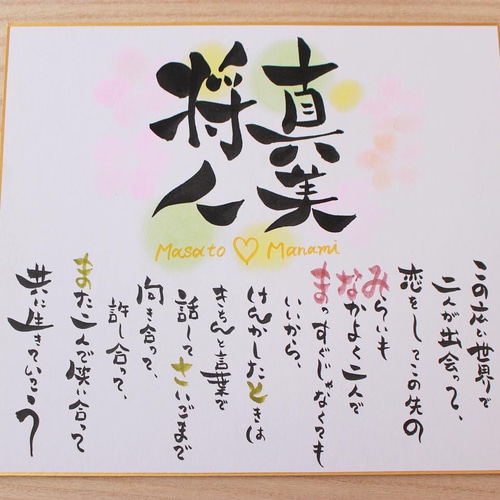 真美
将人
Masato ♡ Manami
この広い世界で
二人が出会って、
恋をしてこの先の
みらいも
なかよく二人で
まっすぐじゃなくても
いいから、
けんかしたときは
きちんと言葉で
話してさいごまで
向き合って、
許し合って、
また二人で笑い合って
共に生きていこう